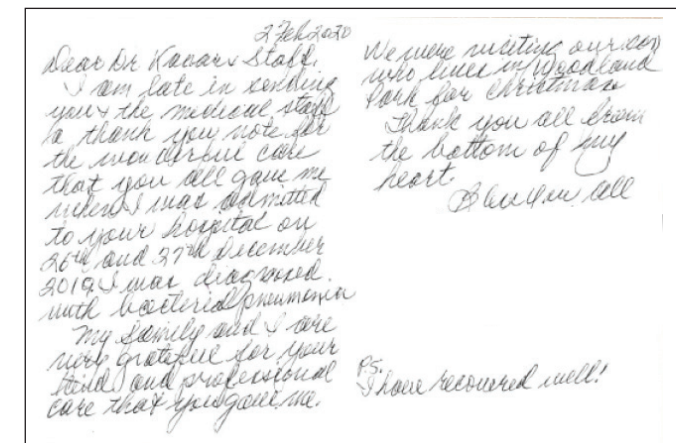 2 Feb 2020
Dear Dr Kavar & Staff,
I am late in sending
you & the medical staff
a thank you note for
the wonderful care
that you all gave me
when I was admitted
to your hospital on
26th and 27th December
2019. I was diagnosed
with bacterial pneumonia
My family and I are
very grateful for your
kind and professional
care that you gave me.
We were visiting our son
who lives in Woodland
Park for Christmas
Thank you all from
the bottom of my
heart.
Bless you all
P.S.
I have recovered well!